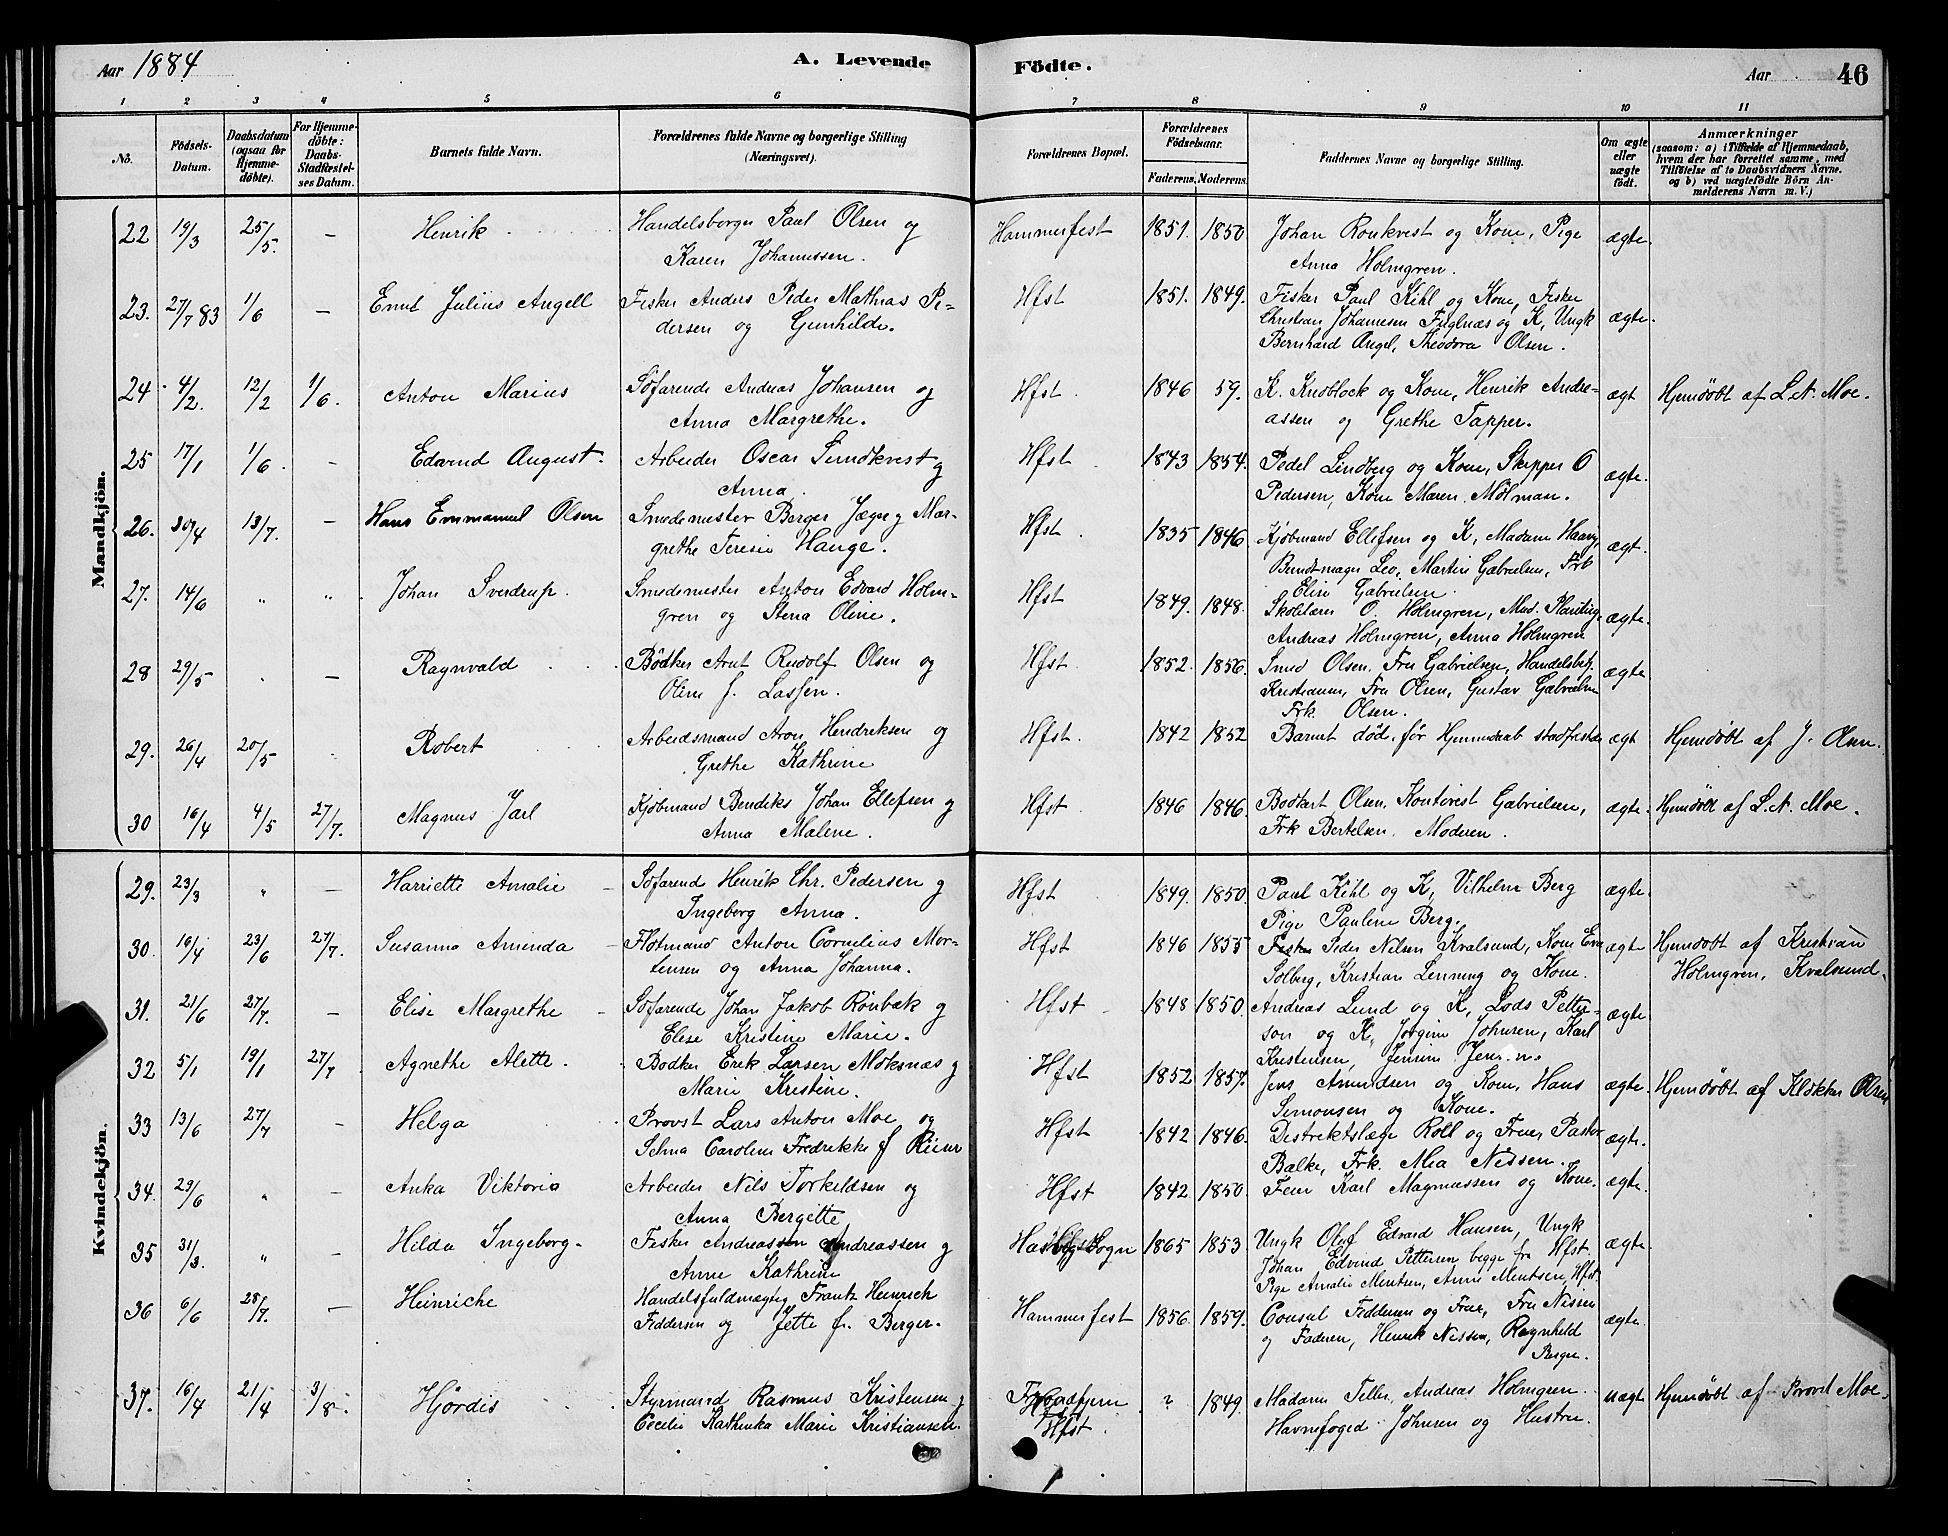 Aar 1884
A. Levende
Födte.
Aar
46
1 2 3 4 5 6 7 8 9 10 11
No.
Födsels-Datum.
Daabsdatum (ogsaa for Hjemme-döbte).
For Hjemme-döbte: Daabs-Stadfæstel-ses Datum.
Barnets fulde Navn.
Forældrenes fulde Navne og borgerlige Stilling (Næringsvei).
Forældrenes Bopæl.
Forældrenes Födselsaar.
Faderens. Moderens.
Faddernes Navne og borgerlige Stilling.
Om ægte eller uægte födt.
Anmærkninger
(saasom: a) i Tilfælde af Hjemmedaab, hvem der har forrettet samme, med Tilföielse af to Daabsvidners Navne. og b) ved uægtefödte Börn An-melderens Navn m. V.)
Mandkjön.
22 19/3 25/5. – Henrik Handelsborger Paul Olsen og Hammerfest 1851. 1850 Johan Ronkvest og Kone, Pige ægte.
Karen Johannssen. Anna Holmgren.
23. 27/7 83 1/6 – Emil Julius Angell Fisker Anders Peder Mathias Pe- Hfst 1851. 1849. Fisker Paul Kihl og Kone, Fisker ægte.
dersen og Gunhilde. Christian Johannesen Fuglnæs og K, Ungk
Bernhard Angel, Theodora Olsen.
24 4/2. 12/2 1/6. Anton Marius Söfarende Andreas Johansen og Hfst. 1846 59. K. Knoblock og Kone, Henrik Andre- ægt Hjemdöbt af L. A. Moe.
Anna Margrethe. assen og Grethe Tapper.
25 17/1 1/6. – Edvard August. Arbeider Oscar Sundkvest og Hfst. 1843 1854. Pedel Lindberg og Kone, Skipper O ægte.
Anna. Pedersen, Kone Maren Mölman.
26. 30/4 13/7. – Hans Emmanuel Olsen Smedemester Berger Jæger og Mar- Hfst. 1835 1846 Kjöbmand Ellefsen og K, Madam Haavig, ægt.
grethe Teresie Hauge. Bundtmager Leo, Martin Gabrielsen, Frk
Elise Gabrielsen.
27. 14/6 " " Johan Sverdrup. Smedemester Anton Edvard Holm- Hfst 1849. 1848. Skolelærer O. Holmgren, Mad. Planting, ægte.
gren og Stena Oline. Andreas Holmgren, Anna Holmgren
28 29/5 . – Ragnvald Bödker Arnt Rudolf Olsen og Hfst. 1852. 1856. Smed Olsen. Fru Gabrielsen, Handelsbetj. ægte.
Oline f. Lassen. Kristiansen, Fru Olsen, Gustav Gabrielsen
Frk. Olsen.
29. 26/4 20/5 Robert Arbeidsmand Aron Hendreksen og Hfst. 1842 1852 Barnet död. för Hjemmedaab stadfestedes ægt Hjemdöbt af J. Olsen.
Grethe Kathrine
30 16/4 4/5 27/7. Magnus Jarl Kjöbmand Bendiks Johan Ellefsen og Hfst. 1846 1846. Olsen, Gabrielsen, ægte. Hjemdöbt af L. A. Moe.
Anna Malene. Frk Bertelsen. Moderen.
Kvindekjön.
29. 23/3 " – Harriette Amalie – Söfarend Henrik Chr. Pedersen og Hfst 1849. 1850. Paul Kihl og K, Vilhelm Berg ægte.
Ingeborg Anna. Pige Pauline Berg.
30. 16/4 23/6 27/7. Susanna Aminda – Flotmand Anton Cornelius Mor- Hfst 1846 1855 Fisker Peder Nilsen Kvalsund, Kone Eva ægte Hjemdöbt af Kristian
tensen og Anna Johanna. Solberg, Kristian Lenning og Kone. Holmgren, Kvalsund.
31. 21/6 27/7. – Elise Margrethe – Söfarende Johan Jakob Rönbæk og Hfst 1848 1850. Andreas Lund og K, Lods Petter- ægte
Elise Kristine Marie. son og K, Jorgine Johnsen, Karl
Kristensen, Jensine Jensen.
32 5/1 19/1 27/7 Agnethe Alette. Bodker Erik Larsen Moksnæs og Hfst 1852 1857. Jens Amundsen og Kone, Hans ægte. Hjemdöbt af Klokker Olsen
Marie Kristine. Simonsen og Kone.
33 13/6 27/7 – Helga Provst Lars Anton Moe og Hfst 1842 1846. Distriktslæge Roll og Frue, Pastor ægte.
Selma Caroline Fredrikke f Balke, Frk. Mia Nissen.
34. 29/6 " – Anka Viktoria Arbeider Nils Torkeldsen og Hfst 1842. 1850. Feier Karl Magnussen og Kone. ægte.
Anna Bergette
35 31/3. " – Hilda Ingeborg. Fisker Andreassen Andreassen og Sogn 1865 1853 Ungk Olaf Edvard Hansen, Ungk ægte.
Anne Kathrine Johan Edvind Pettersen begge fra Hfst,
Pige Amalie Mentsen, Anne Mentsen, Hfst.
36 6/6 28/7. – Heinriche Handelsfuldmægtig Frantz Heinrich Hammerfest 1856. 1859. Consul Feddersen og Frue, Fru Nissen ægte.
Feddersen og Jette f. Berger. og Faderen, Henrik Nissen, Ragnhild
Berger.
37. 16/4 21/4 3/8. Hjördis Styrmand Rasmus Kristensen og ? 1849. Madam Teller, Andreas Holmgren. uægt Hjemdöbt af Provst Moe.
Cecilie Kathinka Marie Kristiansen. Hfst. Havnefoged Johnsen og Hustru.